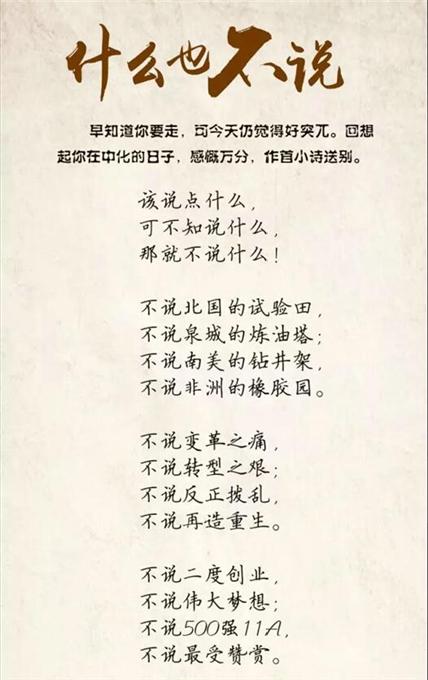 什么也不说
早知道你要走，可今天仍觉得好突兀。回想
起你在中化的日子，感慨万分，作首小诗送别。
该说点什么，
可不知说什么，
那就不说什么！
不说北国的试验田，
不说泉城的炼油塔；
不说南美的钻井架，
不说非洲的橡胶园。
不说变革之痛，
不说转型之艰；
不说反正拨乱，
不说再造重生。
不说二度创业，
不说伟大梦想；
不说500强11A，
不说最受赞赏。